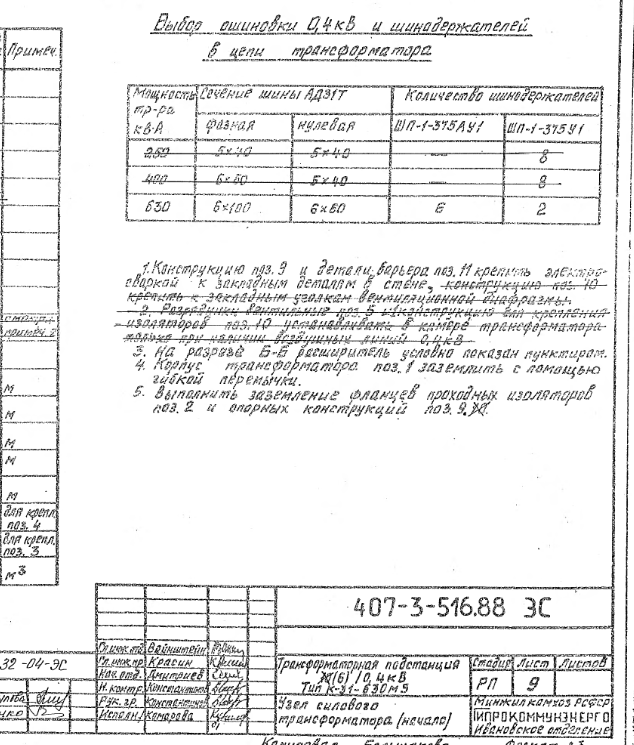 Выбор ошиновки 0,4кВ и шинодержателей
в цепи трансформатора
Примеч.
Мощность тр-ра кВ·А
Сечение шины АД31Т
Количество шинодержателей
фазная
нулевая
ШП-1-375АУ1
ШП-1-375У1
250 5×40 5×40 — 8
400 6×60 5×40 — 8
630 6×100 6×60 6 2
1. Конструкцию поз. 9 и детали барьера поз. 11 крепить электро-
сваркой к закладным деталям в стене, конструкцию поз. 10
крепить к закладным уголкам вентиляционной диафрагмы.
2. Разрядники вентильные поз. 5 и конструкцию для крепления
изоляторов поз. 10 устанавливать в камере трансформатора
только при наличии воздушных линий 0,4кВ
3. На разрезе Б-Б расширитель условно показан пунктиром.
4. Корпус трансформатора поз. 1 заземлить с помощью
гибкой перемычки.
5. Выполнить заземление фланцев проходных изоляторов
поз. 2 и опорных конструкций поз. 9.
примеч. 2
м
м
м
м
м
для крепл.
поз. 4
для крепл.
поз. 3
м³
407-3-516.88 ЭС
32-04-ЭС
Гл. инж. пр. Красин
Нач. отд. Дмитриев
Н. контр. Константинов
Рук. гр. Константинов
Исполн. Комарова
Трансформаторная подстанция
(6)/0,4кВ
Тип К-31-630М5
Узел силового
трансформатора (начало)
Стадия Лист Листов
РП 9
Минжилкомхоз РСФСР
ГИПРОКОММУНЭНЕРГО
Ивановское отделение
Копировал
Формат А3